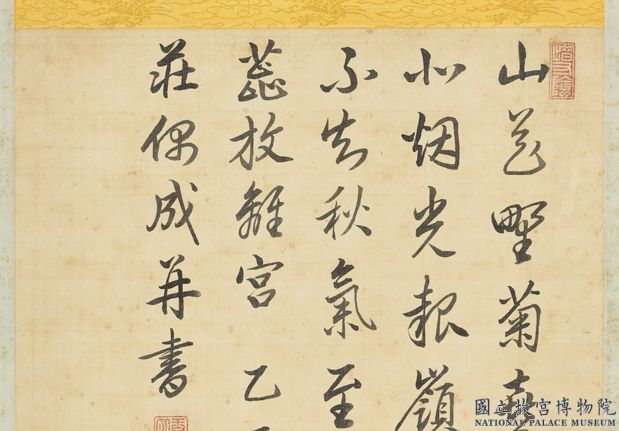 山花野菊
烟光嶺
不知秋氣至
蕊放離宮乙
莊偶成并書
國立故宮博物院
NATIONAL PALACE MUSEUM